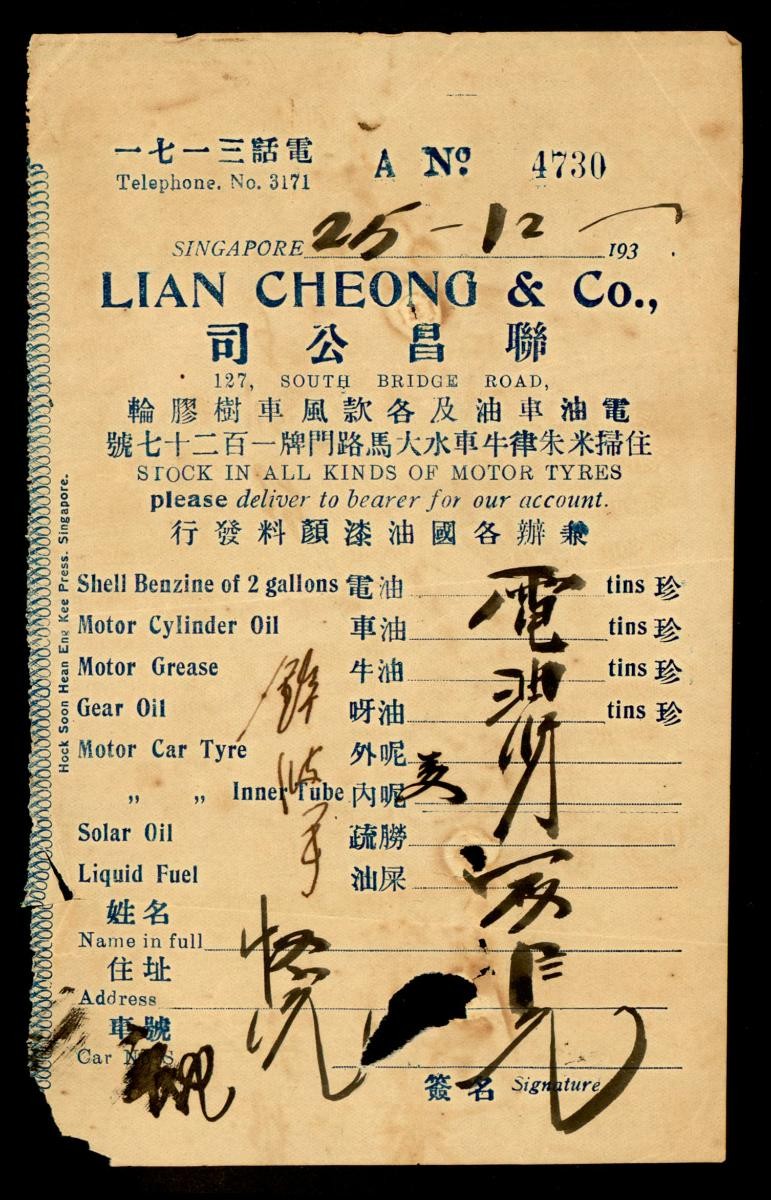 一七一三話電
Telephone. No. 3171
A No. 4730
SINGAPORE 25-12 193 .
LIAN CHEONG & Co.,
司公昌聯
127, SOUTH BRIDGE ROAD,
輪膠樹車風款各及油車油電
號七十二百一牌門路馬大水車牛律朱米掃住
STOCK IN ALL KINDS OF MOTOR TYRES
please deliver to bearer for our account.
行發料顏漆油國各辦兼
Shell Benzine of 2 gallons 電油 tins 珍
Motor Cylinder Oil 車油 tins 珍
Motor Grease 牛油 tins 珍
Gear Oil 呀油 tins 珍
Motor Car Tyre 外呢
„ „ Inner Tube 內呢
Solar Oil 疏勝
Liquid Fuel 油屎
電油
姓名
Name in full
住址
Address
車號
Car No's
簽名 Signature
Hock Soon Hean Eng Kee Press. Singapore.